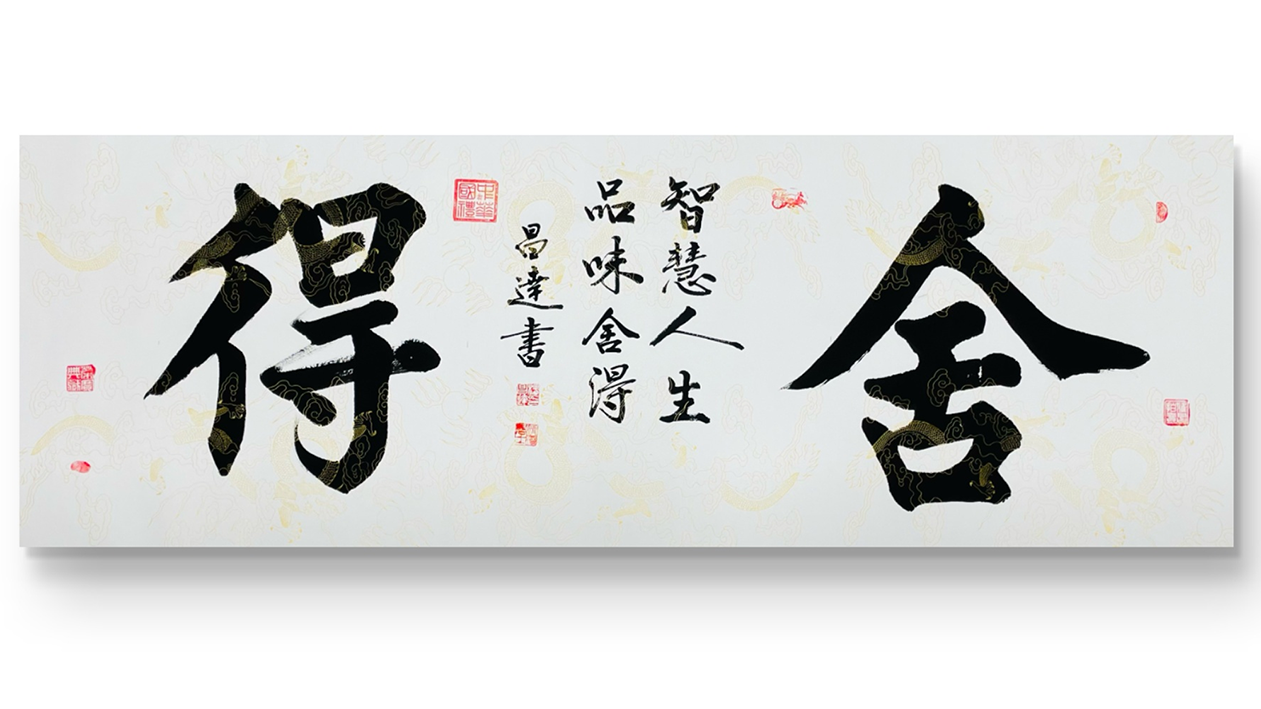 舍
智慧人生
品味舍得
昌達書
得